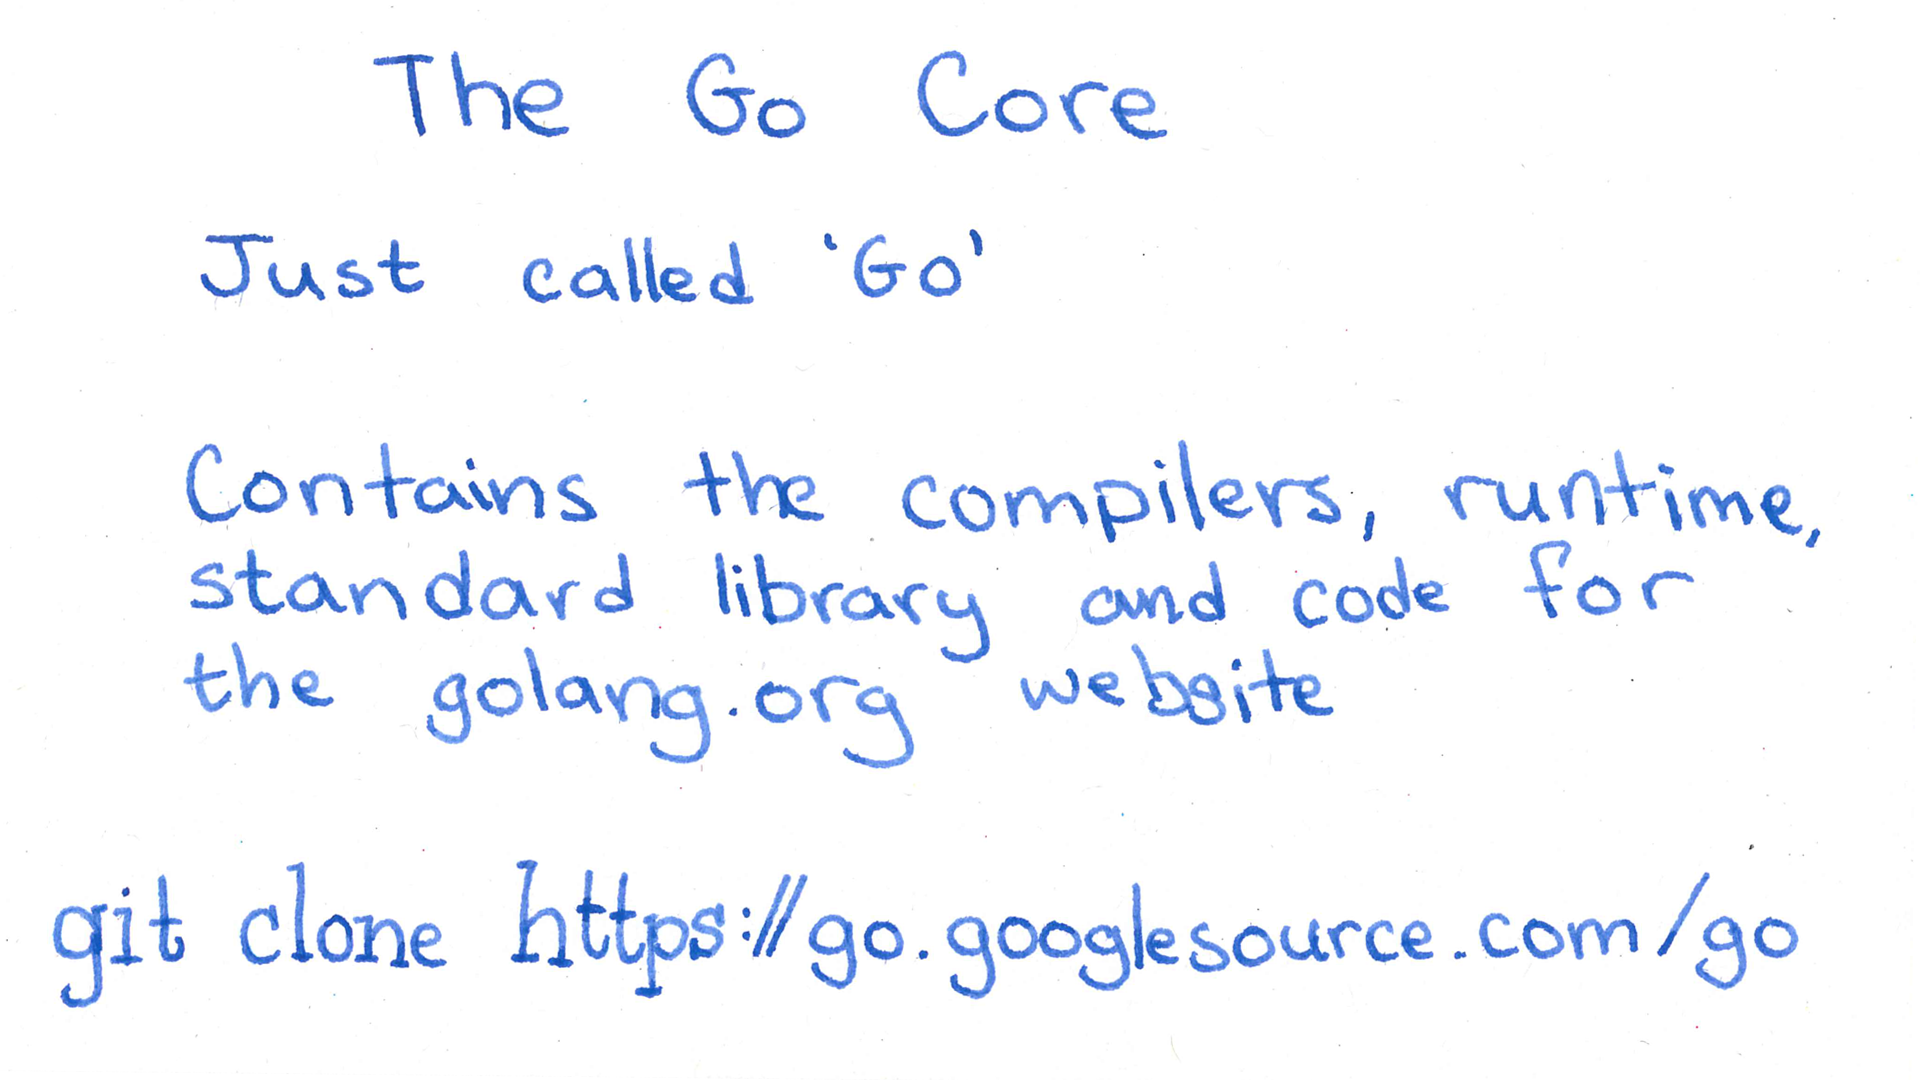 The Go Core
Just called 'Go'
Contains the compilers, runtime,
standard library and code for
the golang.org website
git clone https://go.googlesource.com/go